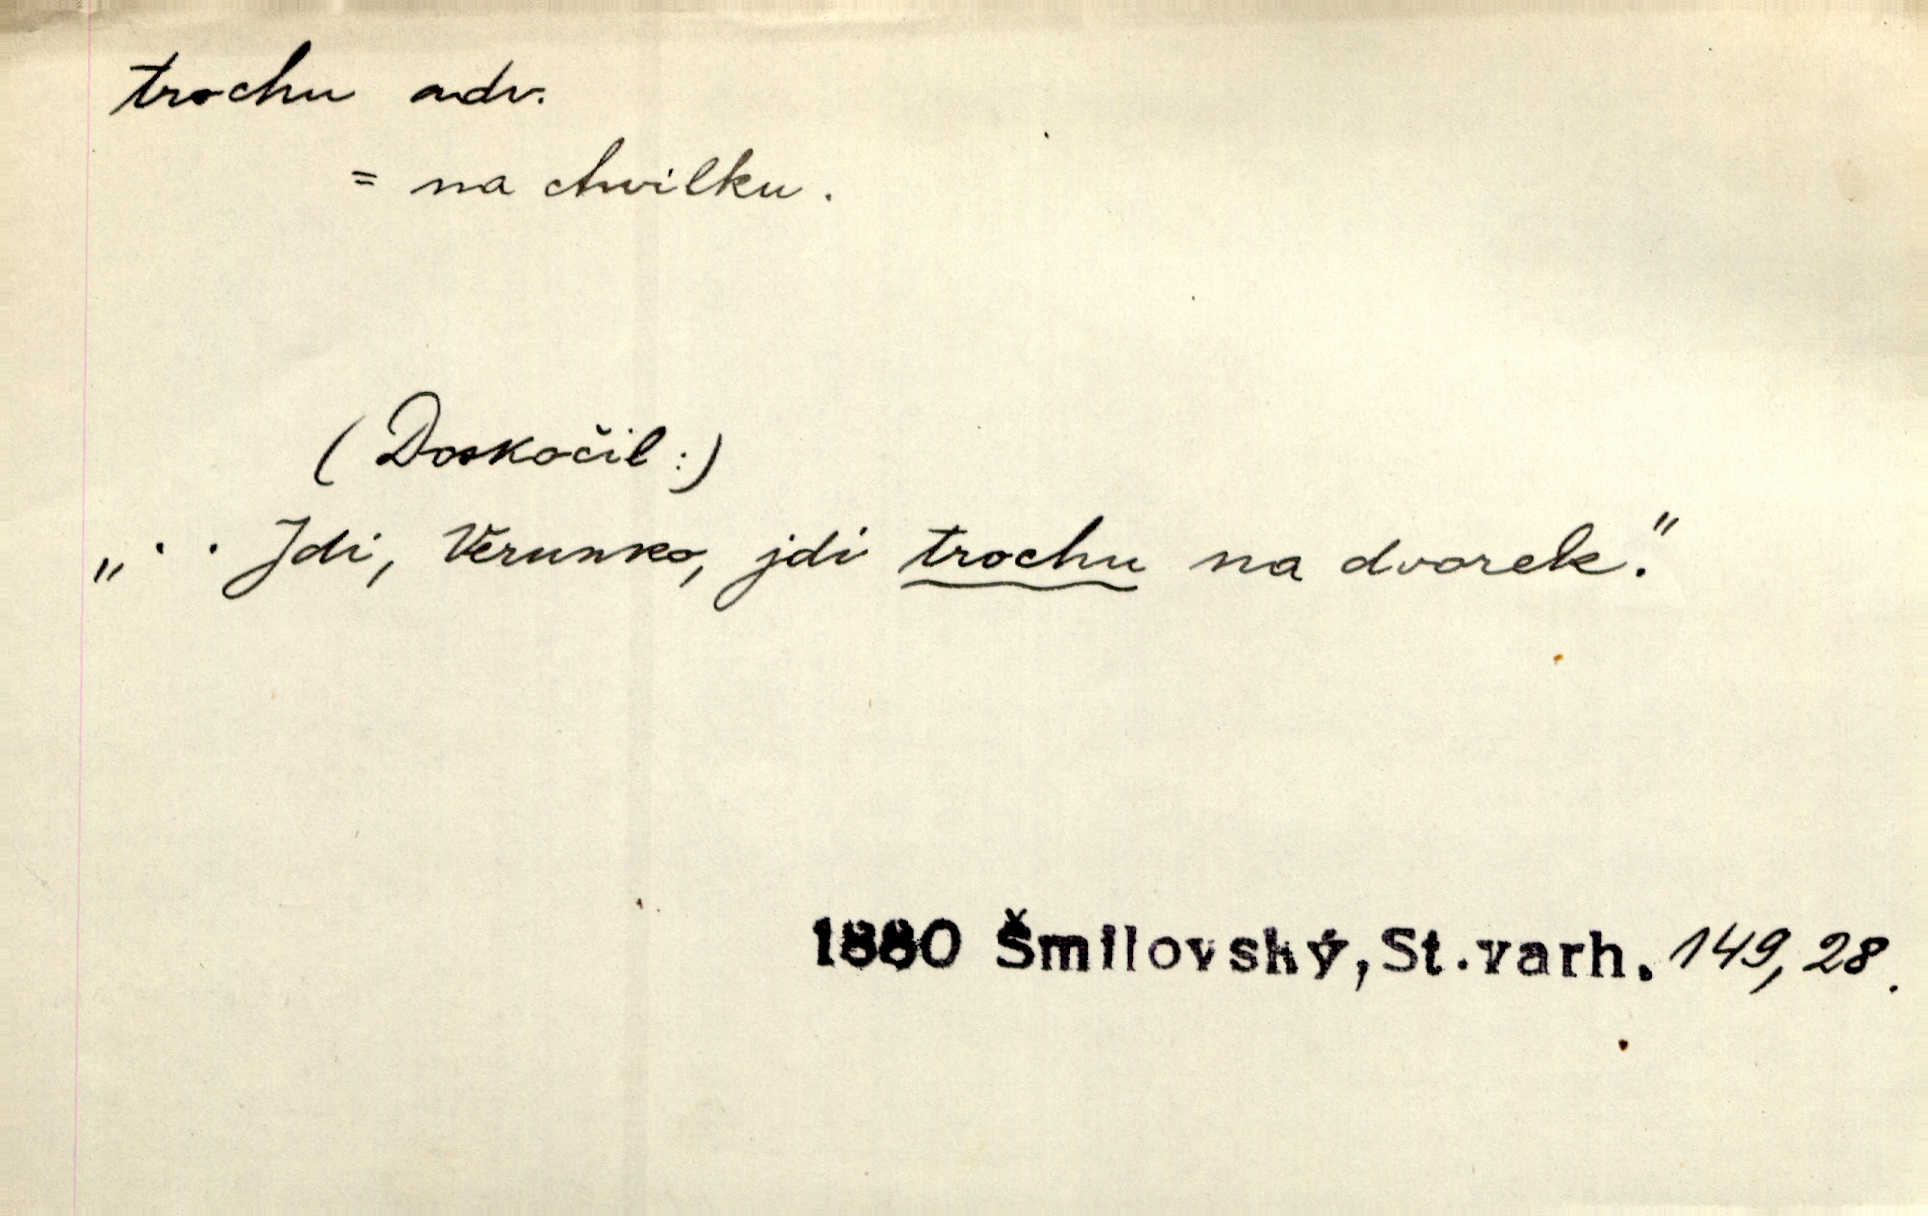 trochu adv.
= na chvilku.
(Doskočil:)
„ . . Jdi, Věrunko, jdi trochu na dvorek."
1880 Šmilovský, St.varh. 149, 28.